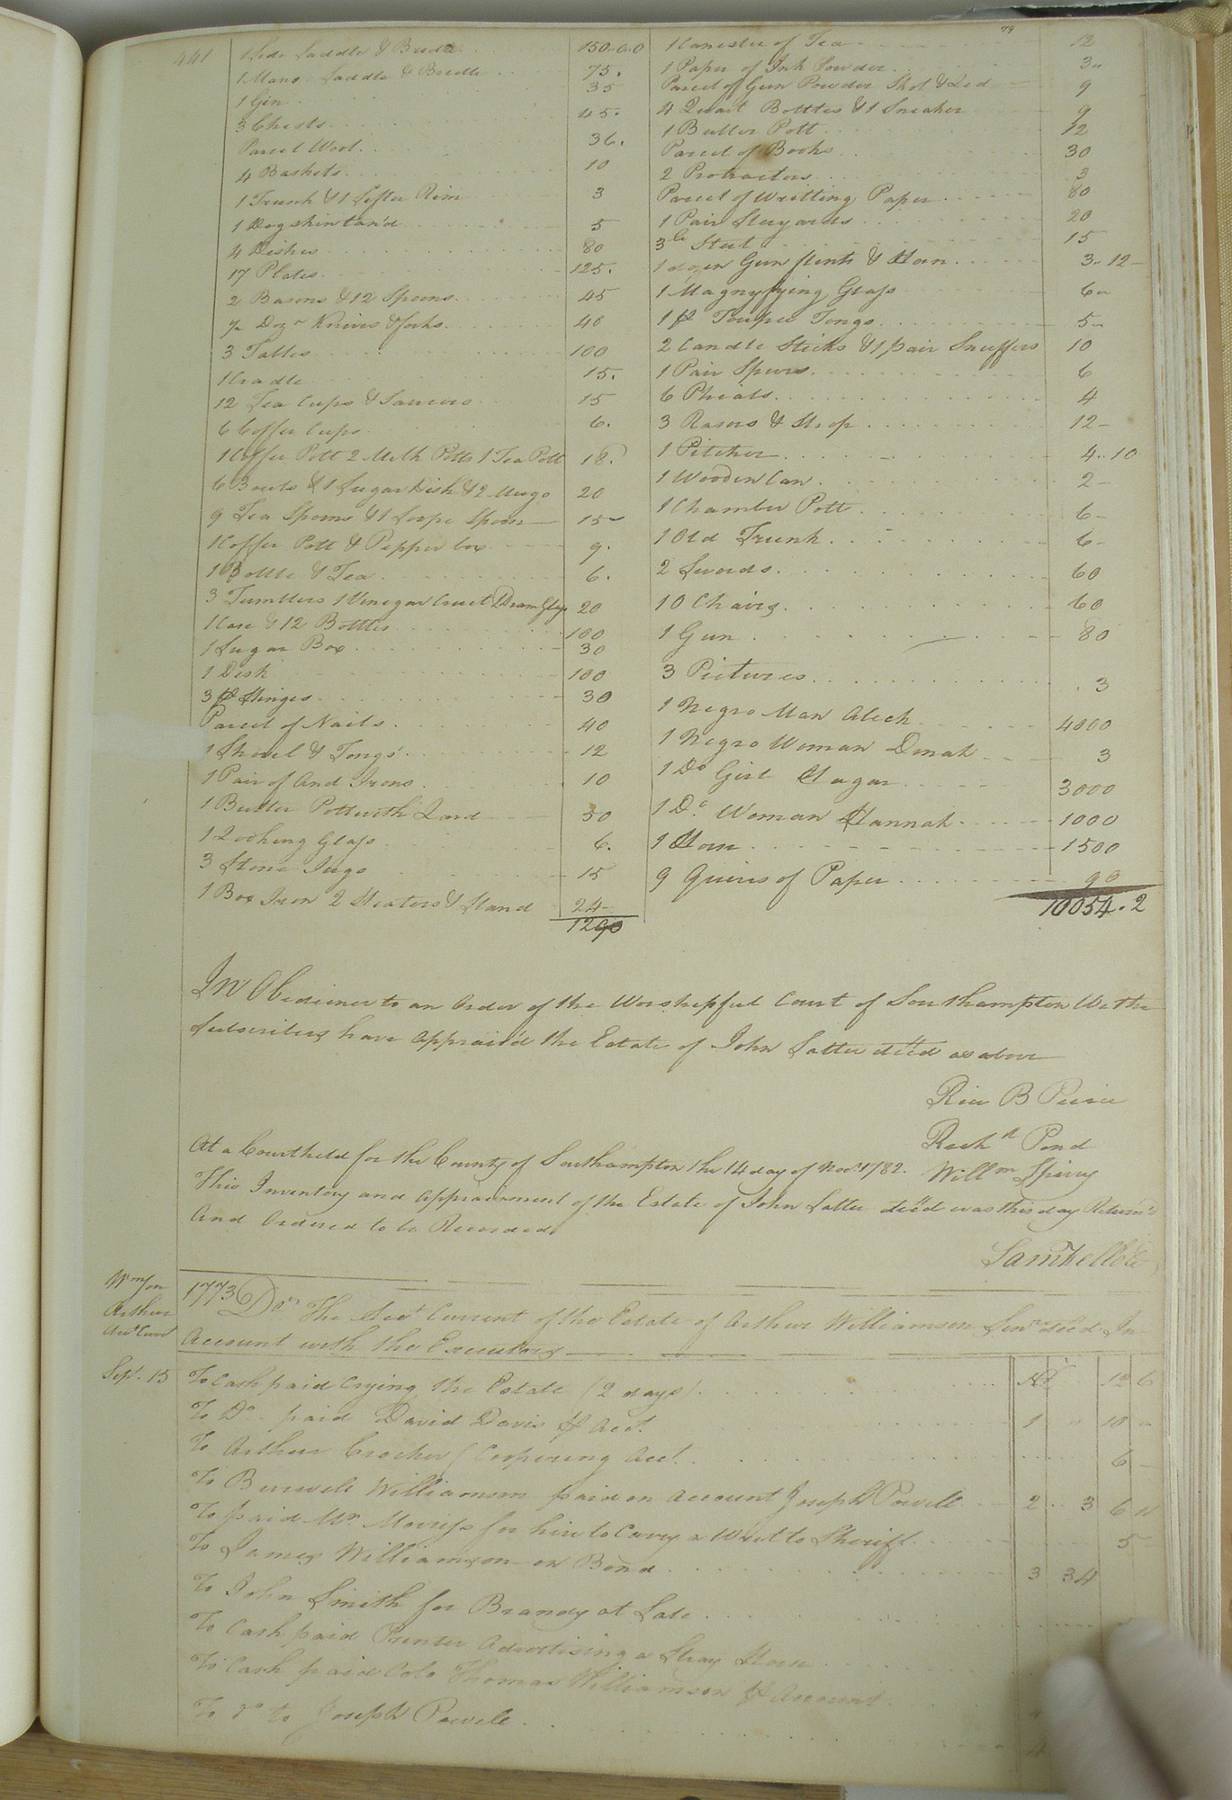 441
79
1 Side Saddle & Bridle 150.0.0
1 Mans Saddle & Bridle 75.
1 Gin 35
3 Chests 45.
Parcel Wool 36.
4 Baskets 10
1 Trunk & 1 Sifter Rim 3
1 Dogskin tan'd 5
4 Dishes 80
17 Plates 125.
2 Basons & 12 Spoons 45
½ Dozn Knives & forks 40
3 Tables 100
1 Cradle 15.
12 Tea Cups & Saucers 15
6 Coffee Cups 6.
1 Coffee Pott 2 Milk Potts 1 Tea Pott 18.
6 Bowls & 1 Sugar dish & 2 Mugs 20
9 Tea Spoons & 1 Soope Spoon 15
1 Coffee Pott & Pepper box 9.
1 Bottle & Tea 6.
3 Tumblers 1 Vinegar Cruet Dram Glass 20
1 Case & 12 Bottles 100
1 Sugar Box 30
1 Desk 100
3 pr Hinges 30
Parcel of Nails 40
1 Shovel & Tongs 12
1 Pair of And Irons 10
1 Butter Pott with Lard 30
1 Looking Glass 6.
3 Stone Jugs 15
1 Box Iron 2 Heaters & Stand 24
1290
1 Canester of Tea 12
1 Paper of Ink Powder 3
Parcel of Gun Powder Shot & Led 9
4 Quart Bottles & 1 Sneaker 9
1 Butter Pott 12
Parcel of Books 30
2 Protractors 3
Parcel of Writting Paper 80
1 Pair Steyards 20
3 lb Steel 15
1 dozen Gun flints & Horn 3..12
1 Magnyfying Glass 6
1 pr Toupee Tongs 5
2 Candle Sticks & 1 pair Snuffers 10
1 Pair Spurs 6
6 Phials 4
3 Rasors & Strop 12
1 Pitcher 4..10
1 Wooden Can 2
1 Chamber Pott 6
1 Old Trunk 6
2 Swords 60
10 Chairs 60
1 Gun 80
3 Pictures 3
1 Negro Man Aleck 4000
1 Negro Woman Dinah 3
1 Do Girl Hagar 3000
1 Do. Woman Hannah 1000
1 Horse 1500
9 Quires of Paper 90
10054.2
In Obedience to an Order of the Worshipful Court of Southampton We the
Subscribers have appraised the Estate of John Latter decd as above
Rice B Peirce
Richd Pond
Willm Spivey
At a Court held for the County of Southampton the 14 day of Novr 1782.
This Inventory and appraisment of the Estate of John Latter decd was this day Return'd
And Ordered to be Recorded
Saml Kello
Wmson
Arthur
Acct Curt
1773 Dr The Acct Current of the Estate of Arthur Williamson Senr decd In
Account with the Executors
Sept. 15 To Cash paid Crying the Estate (2 days)
To Do paid David Davis pr Acct. 1 10
To Arthur Crocker Coopering Acct. 6
To Burwell Williamson paid on Account Joseph Powell 2 3 6
To paid Mr. Morriss for hire to Carry a Writ to Sheriff 5
To James Williamson on Bond 3 34
To John Smith for Brandy at Sale
To Cash paid Printer Advertising a Stray Horse
To Cash paid Colo Thomas Williamson pr Account
To Do to Joseph Powell